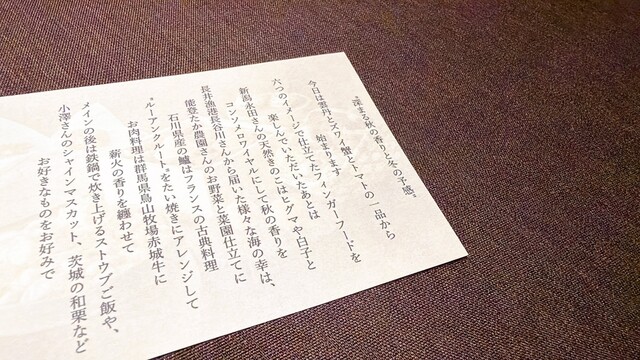 “深まる秋の香りと冬の予感”
今日は雲丹とズワイ蟹とトマトの一品から
始まります
六つのイメージで仕立てたフィンガーフードを
楽しんでいただいたあとは
新潟永田さんの天然きのこはヒグマや白子と
コンソメロワイヤルにして秋の香りを
長井漁港長谷川さんから届いた様々な海の幸は、
能登たか農園さんのお野菜と菜園仕立てに
石川県産の鱸はフランスの古典料理
“ルーアンクルートをたい焼きにアレンジして
お肉料理は群馬県鳥山牧場赤城牛に
薪火の香りを纏わせて
メインの後は鉄鍋で炊き上げるストウブご飯や、
小澤さんのシャインマスカット、茨城の和栗など
お好きなものをお好みで